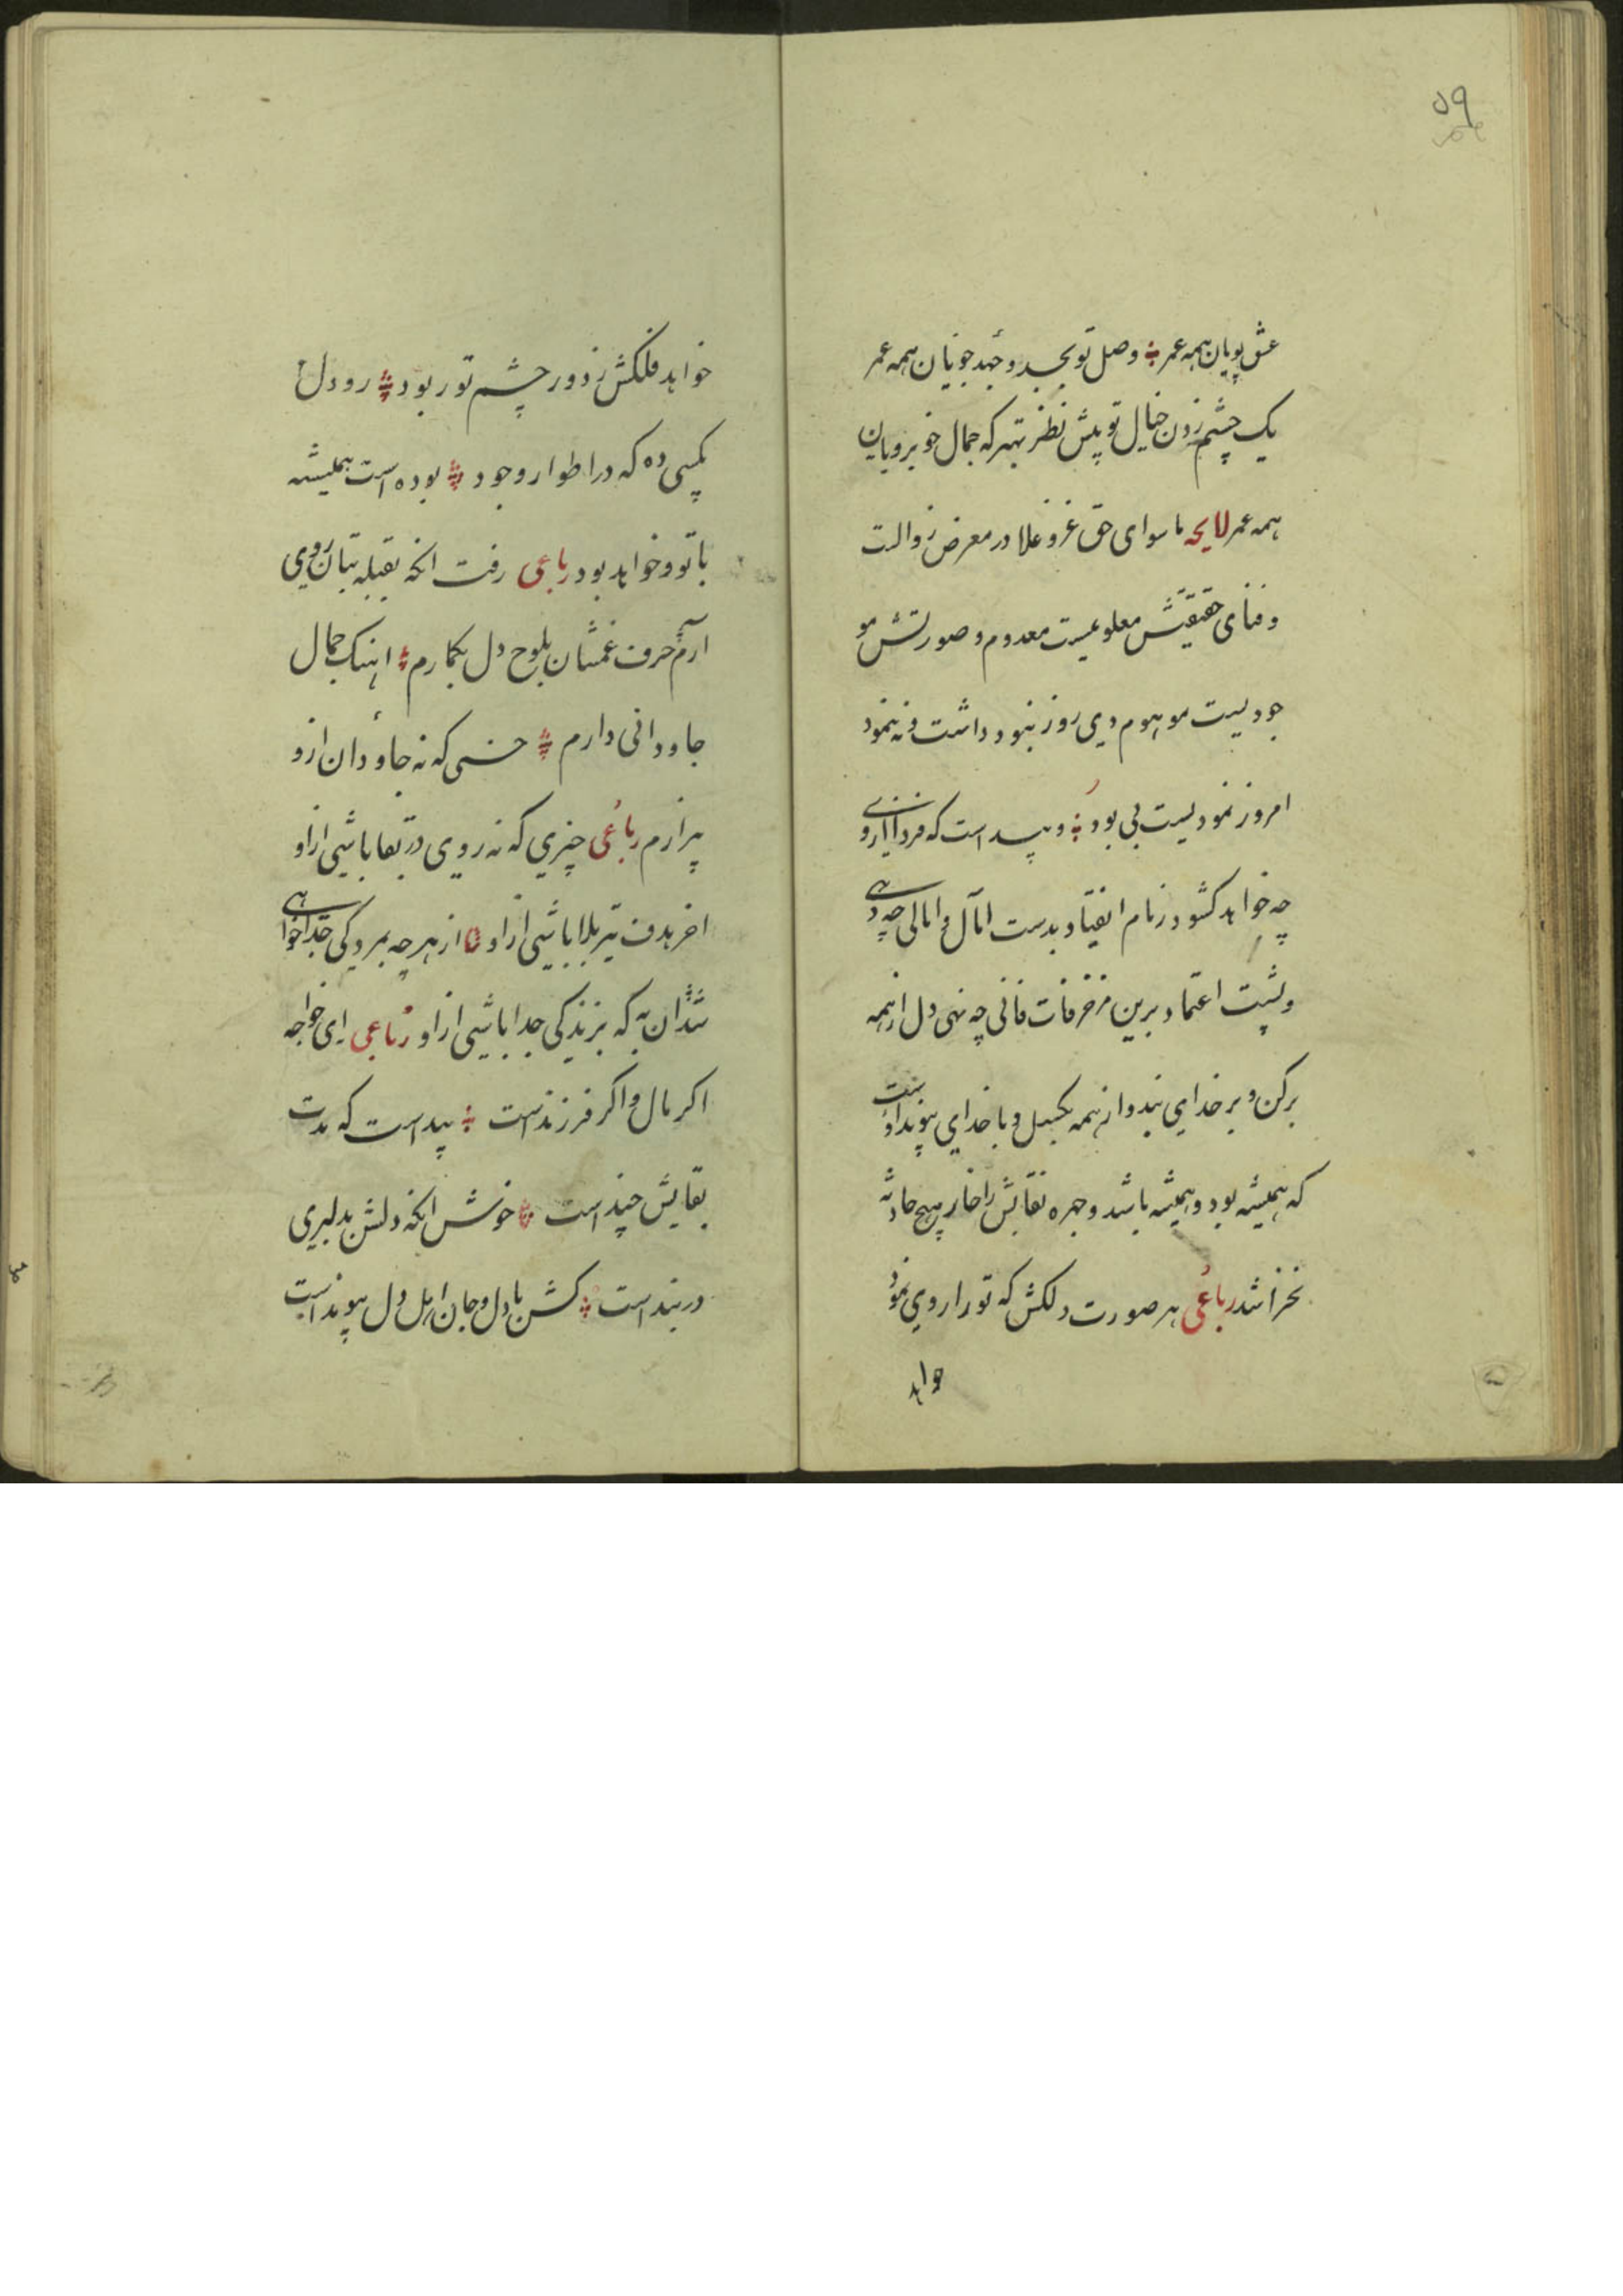 ۵۹
عشق پویان همه عمر وصل تو بجد و جهد جویان همه عمر
یک چشم زدن خیال تو پیش نظر بهتر که جمال خوبرویان
همه عمر لایحه ماسوای حق عز و علا در معرض زوالت
و فنای حقیقتش معلومیست معدوم و صورتش مو
جودیست موهوم دی روز نبود داشت و نه نمود
امروز نمودیست بی بود و پیداست که فردا ازوی
چه خواهد کشود زمام انقیاد بدست آمال و امالی چه دهی
و پشت اعتماد برین مزخرفات فانی چه نهی دل از همه
برکن و بر خدای بند و از همه بکسل و با خدای پیوند اوست
که همیشه بود و همیشه باشد و چهره بقایش را خار هیچ حادثه
نخراشد رباعی هر صورت دلکش که تو را روی نمود
خواهد
خواهد فلکش ز دور چشم تو ربود رو دل
بکسی ده که در اطوار وجود بوده است همیشه
با تو و خواهد بود رباعی رفت انکه بقبله بتان روی
آرم حرف غمشان بلوح دل بکارم اهنک جمال
جاودانی دارم حسنی که نه جاودان ازو
بیزارم رباعی چیزی که نه روی در بقا باشی ازاو
اخر هدف تیر بلا باشی ازاو از هر چه بمردکی جدا خواهی
شد ان به که بزندکی جدا باشی ازاو رباعی ای خواجه
اکر مال و اکر فرزندست پیداست که مدت
بقایش چند است خوش انکه دلش بدلبری
در بند است کش با دل و جان اهل دل پیوند است